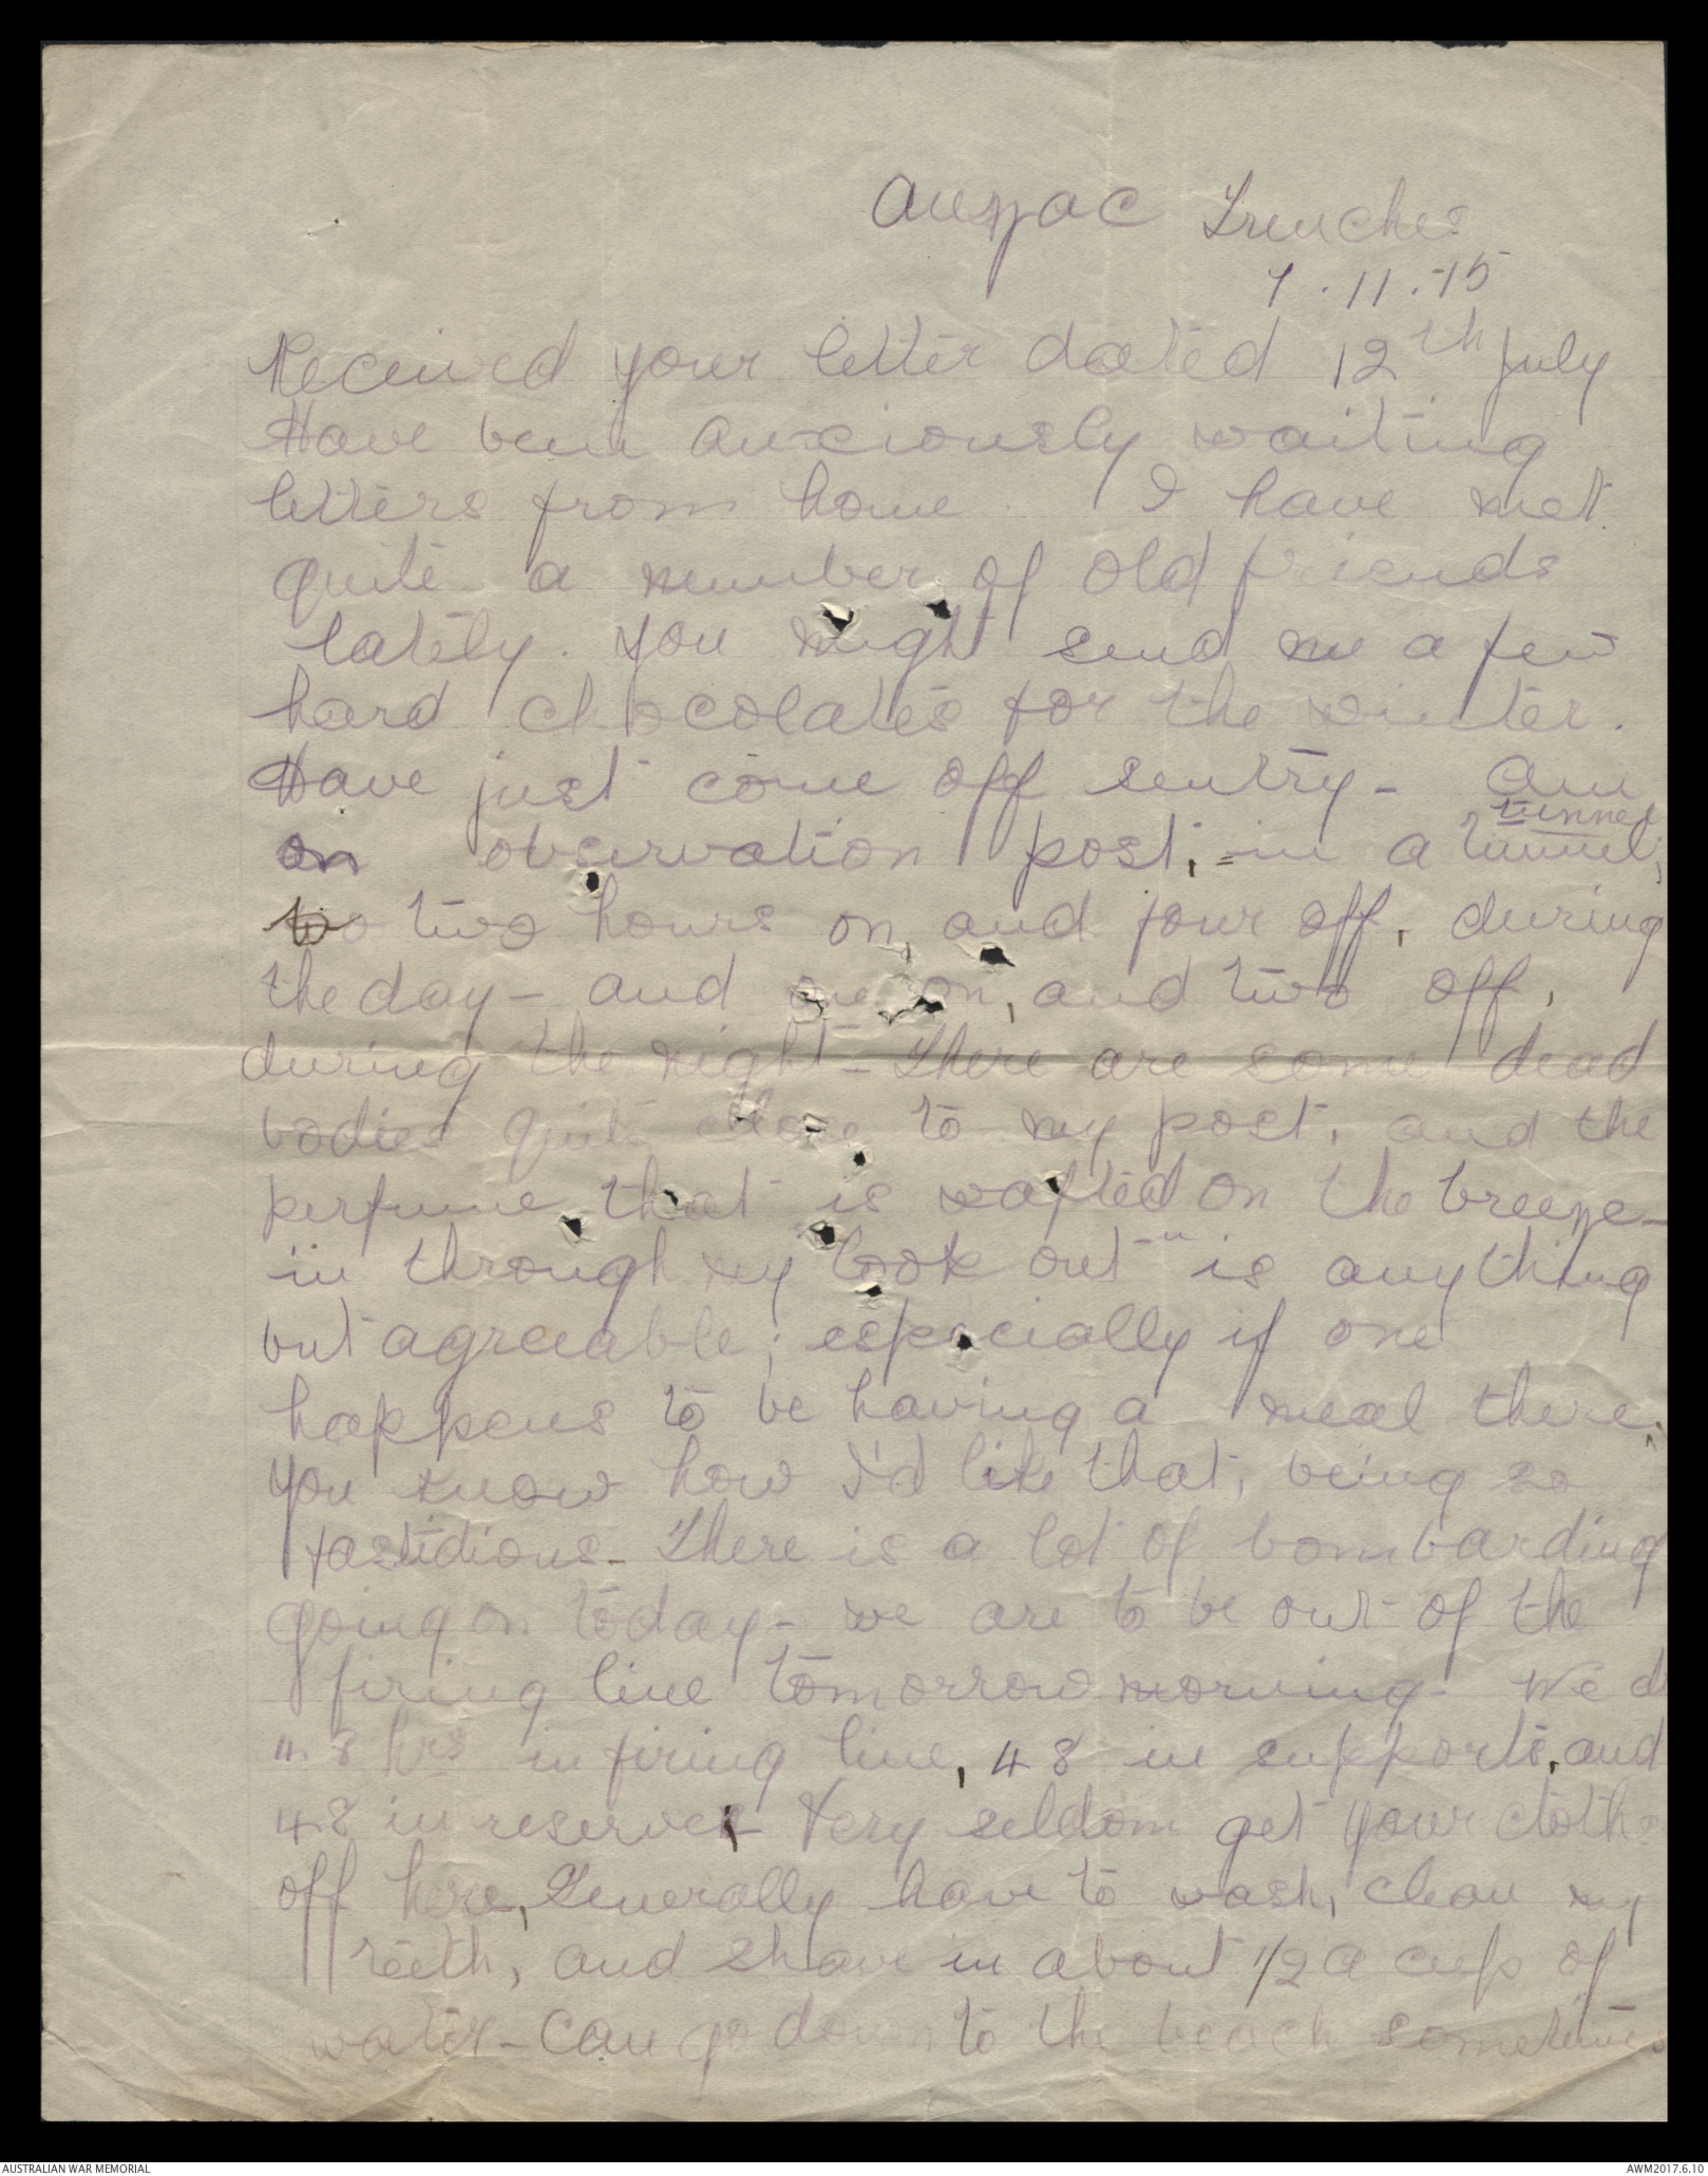 Anzac Trenches
7.11.15
Received your letter dated 12th July
Have been anxiously waiting
letters from home. I have met
quite a number of old friends
lately. You might send me a few
hard chocolates for the winter.
Have just come off sentry - Am
tunnel
on observation post, - in a tunnel,
two hours on, and four off, during
the day - and one on, and two off,
during the night - There are some dead
bodies quite close to my post, and the
perfume that is wafted on the breeze -
in through my "look out" is anything
but agreeable; especially if one
happens to be having a meal there.
You know how I'd like that, being so
fastidious - There is a lot of bombarding
going on today - we are to be out of the
firing line tomorrow morning - We d
48 hrs in firing line, 48 in supports, and
48 in reserves - Very seldom get your clothe
off here, Generally have to wash, clean my
teeth, and shave in about 1/2 a cup of
water - Can go down to the beach sometimes
AUSTRALIAN WAR MEMORIAL
AWM2017.6.10